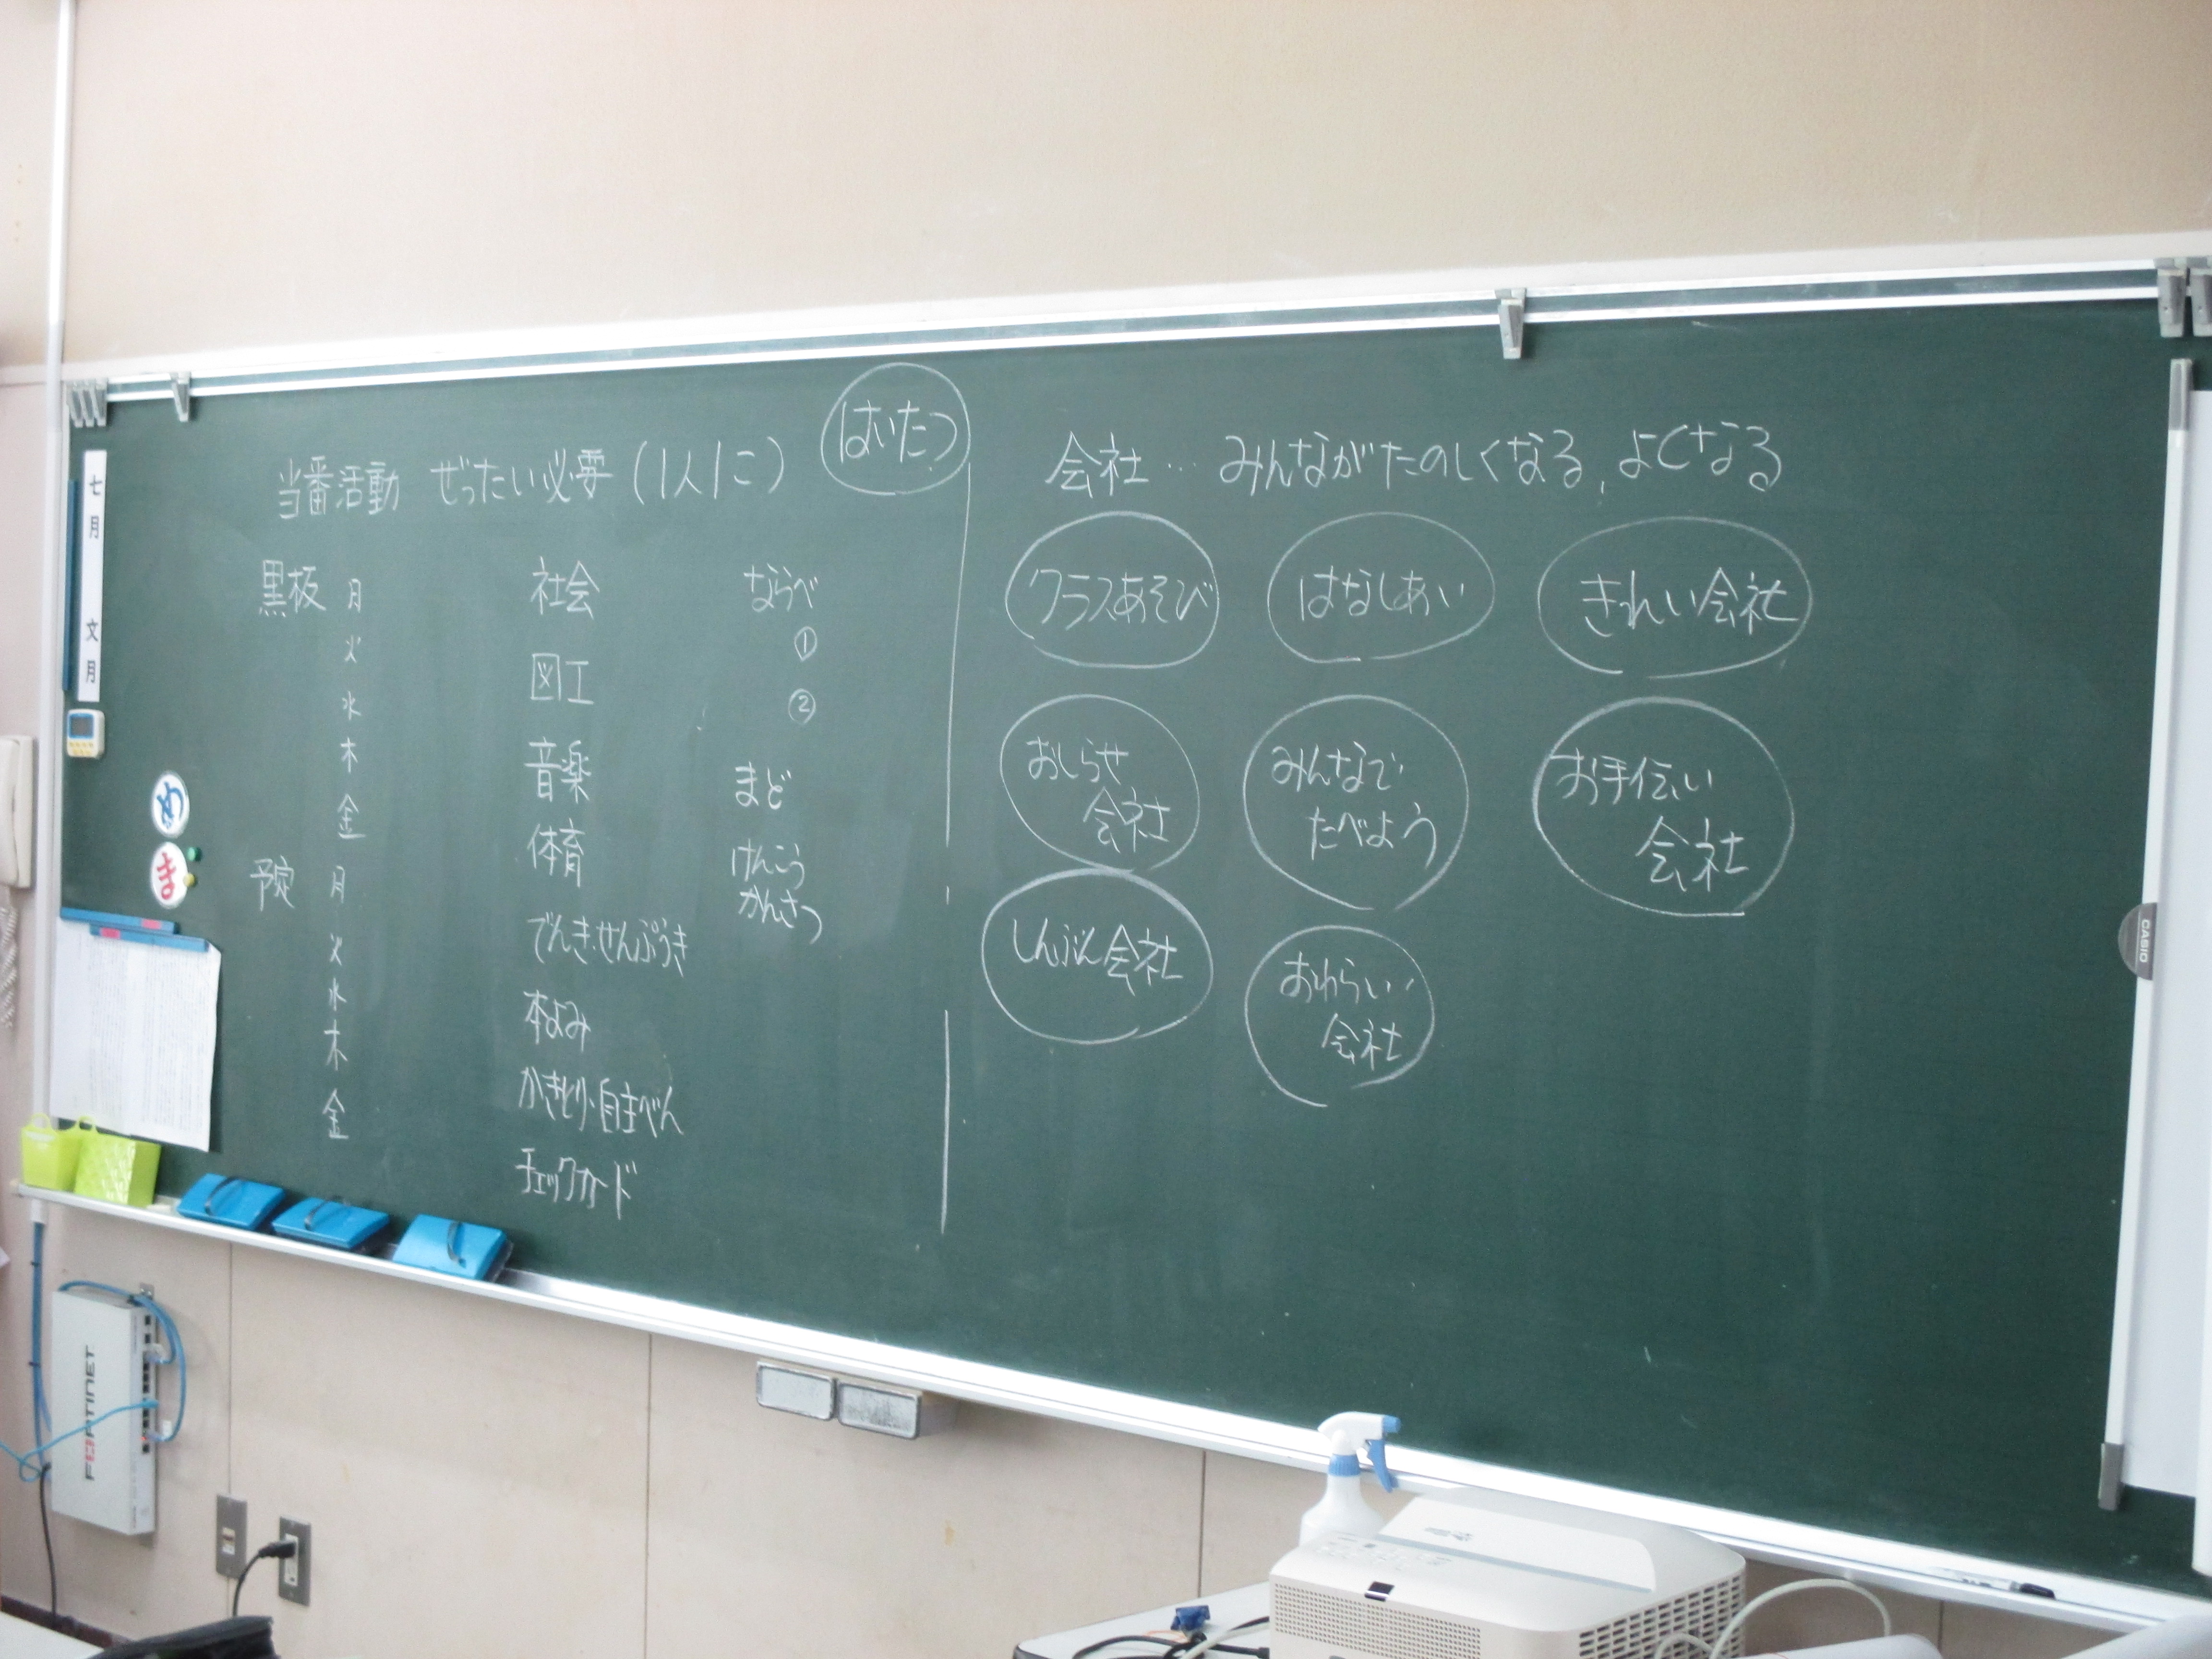 七月 文月
め
き
当番活動 ぜったい必要(1人1こ)
はいたつ
黒板 月
火
水
木
金
予定 月
火
水
木
金
社会
図工
音楽
体育
でんき・せんぷうき
本よみ
かきとり・自主べん
チェックカード
ならべ
①
②
まど
けんこう
かんさつ
会社… みんながたのしくなる、よくなる
クラスあそび
はなしあい
きれい会社
おしらせ
会社
みんなで
たべよう
お手伝い
会社
しんぶん会社
おわらい
会社
CASIO
FORTINET